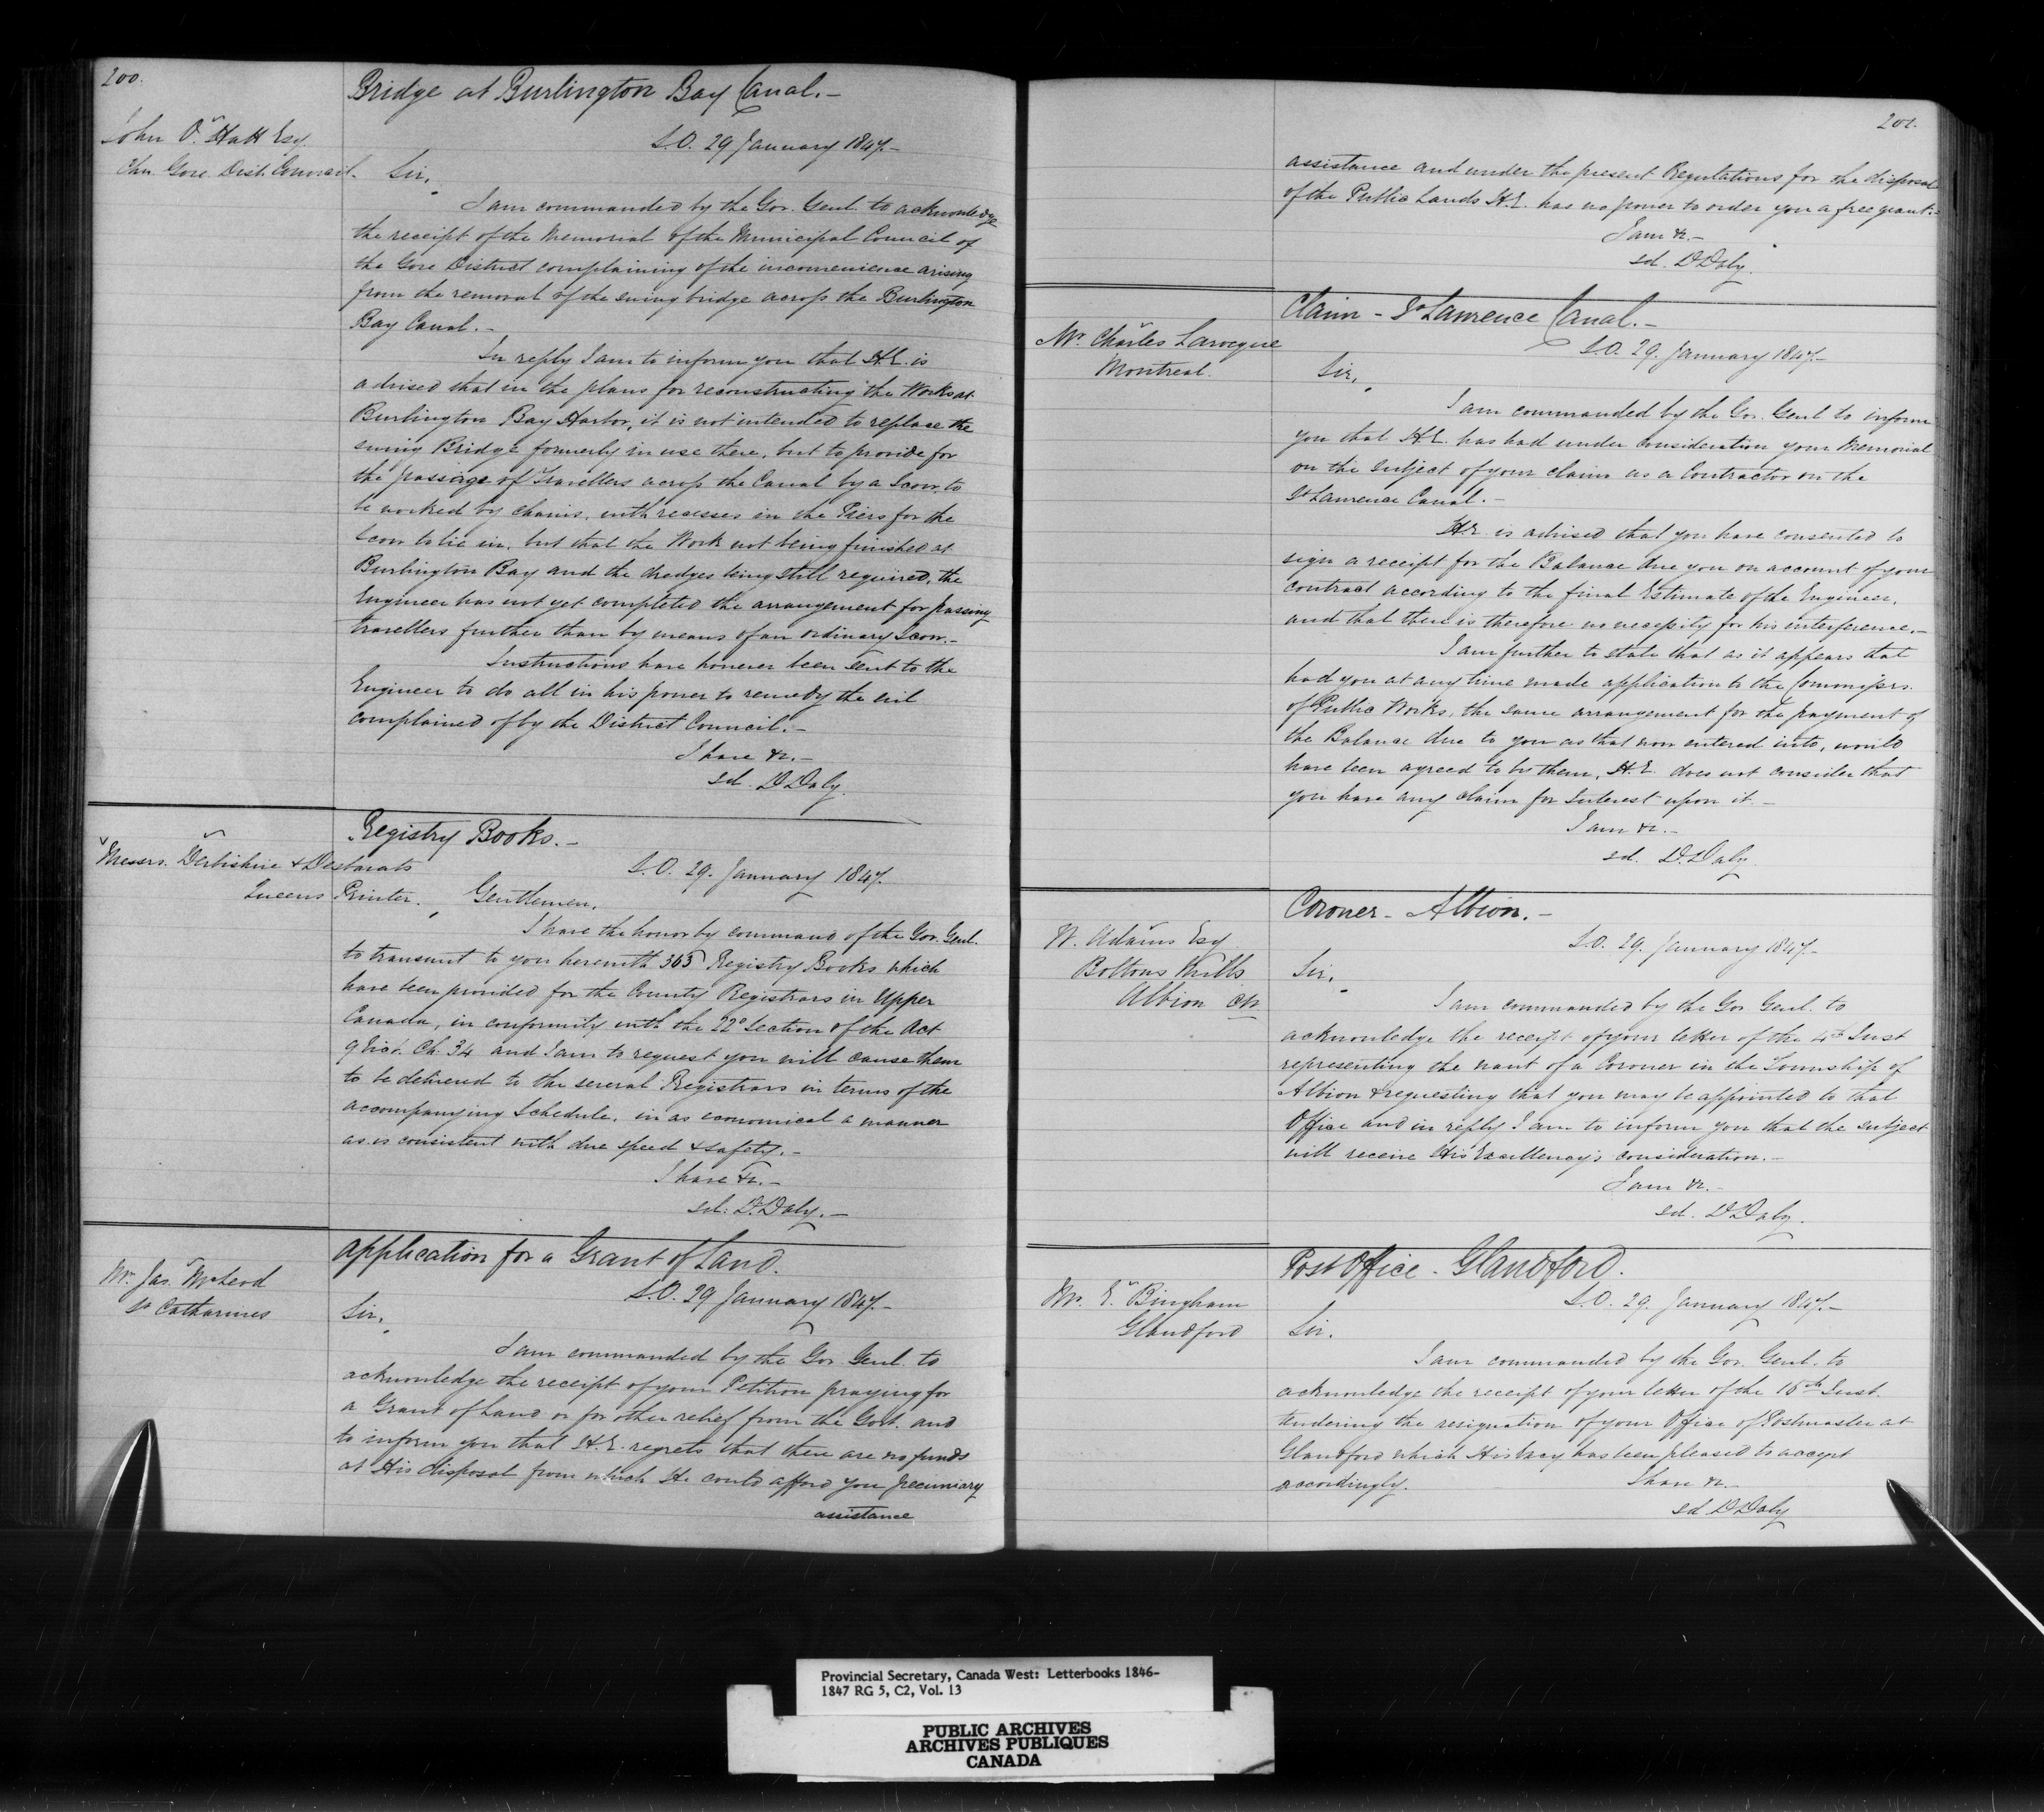 200.
Bridge at Burlington Bay Canal.-
John O. Hatt Esq
Chn. Gore Dist. Council.
S.O. 29 January 1847.-
Sir,
I am commanded by the Gov. Genl. to acknowledge
the receipt of the Memorial of the Municipal Council of
the Gore District complaining of the inconvenience arising
from the removal of the swing bridge across the Burlington
Bay Canal.-
In reply I am to inform you that H.E. is
advised that in the plans for reconstructing the Works at
Burlington Bay Harbor, it is not intended to replace the
swing Bridge formerly in use there, but to provide for
the passage of Travellers across the Canal by a Scow, to
be worked by chains, with recesses in the Piers for the
Scow to lie in, but that the Work not being finished at
Burlington Bay and the dredges being still required, the
Engineer has not yet completed the arrangement for passing
travellers further than by means of an ordinary Scow.-
Instructions have however been sent to the
Engineer to do all in his power to remedy the evil
complained of by the District Council.-
I have &c.-
sd. D Daly.
Registry Books.-
Messrs. Derbishire & Desbarats
Queens Printer.
S.O. 29. January 1847.
Gentlemen,
I have the honor by command of the Gov. Genl.
to transmit to you herewith 365 Registry Books which
have been provided for the County Registrars in Upper
Canada, in conformity with the 22d Section of the Act
9 Vict. Ch. 34 and I am to request you will cause them
to be delivered to the several Registrars in terms of the
accompanying Schedule, in as economical a manner
as is consistent with due speed & safety.-
I have &c.-
sd: D. Daly.-
Application for a Grant of Land.
Mr. Jas. McLeod
St Catharines
S.O. 29 January 1847.-
Sir,
I am commanded by the Gov. Genl. to
acknowledge the receipt of your Petition praying for
a Grant of Land or for other relief from the Govt. and
to inform you that H.E. regrets that there are no funds
at His disposal from which He could afford you pecuniary
assistance
201.
assistance and under the present Regulations for the disposal
of the Public Lands H.E. has no power to order you a free grant.-
I am &c.-
sd. D Daly.
Claim - St Lawrence Canal.-
Mr. Charles Larocque
Montreal.
S.O. 29. January 1847.-
Sir,
I am commanded by the Gov. Genl to inform
you that H.E. has had under consideration your Memorial
on the subject of your claim as a Contractor on the
St Lawrence Canal.-
H.E. is advised that you have consented to
sign a receipt for the Balance due you on account of your
contract according to the final Estimate of the Engineer,
and that there is therefore no necessity for his interference.-
I am further to state that as it appears that
had you at any time made application to the Commissrs.
of Public Works, the same arrangement for the payment of
the Balance due to you as that now entered into, would
have been agreed to by them, H.E. does not consider that
you have any claim for Interest upon it.-
I am &c.-
sd. D. Daly
Coroner - Albion.-
W. Adams Esq
Boltons Mills
Albion CW
S.O. 29. January 1847.-
Sir,
I am commanded by the Gov Genl. to
acknowledge the receipt of your letter of the 4th Inst
representing the want of a Coroner in the Township of
Albion & requesting that you may be appointed to that
Office and in reply I am to inform you that the subject
will receive His Excellency's consideration.-
I am &c.-
sd. D Daly.
Post Office - Glandford.
Mr. E. Bingham
Glandford
S.O. 29. January 1847.-
Sir.
I am commanded by the Gov. Genl. to
acknowledge the receipt of your letter of the 16th Inst.
tendering the resignation of your Office of Postmaster at
Glandford which His Excy has been pleased to accept
accordingly.
I have &c.
sd D Daly
Provincial Secretary, Canada West: Letterbooks 1846-
1847 RG 5, C2, Vol. 13
PUBLIC ARCHIVES
ARCHIVES PUBLIQUES
CANADA